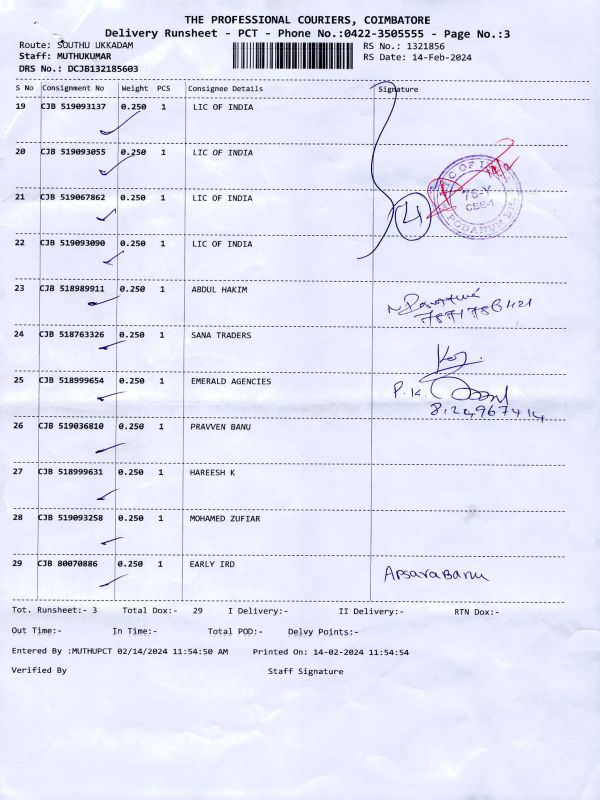 THE PROFESSIONAL COURIERS, COIMBATORE
Delivery Runsheet - PCT - Phone No.:0422-3505555 - Page No.:3
Route: SOUTHU UKKADAM RS No.: 1321856
Staff: MUTHUKUMAR RS Date: 14-Feb-2024
DRS No.: DCJB132185603
S No Consignment No Weight PCS Consignee Details Signature
19 CJB 519093137 0.250 1 LIC OF INDIA
20 CJB 519093055 0.250 1 LIC OF INDIA
21 CJB 519067862 0.250 1 LIC OF INDIA
4
LIC OF
76-Y
CBE-1
22 CJB 519093090 0.250 1 LIC OF INDIA
23 CJB 518989911 0.250 1 ABDUL HAKIM
24 CJB 518763326 0.250 1 SANA TRADERS
25 CJB 518999654 0.250 1 EMERALD AGENCIES
P.K.
8124967414
26 CJB 519036810 0.250 1 PRAVVEN BANU
27 CJB 518999631 0.250 1 HAREESH K
28 CJB 519093258 0.250 1 MOHAMED ZUFIAR
29 CJB 80070886 0.250 1 EARLY IRD
Apsara Banu
Tot. Runsheet:- 3 Total Dox:- 29 I Delivery:- II Delivery:- RTN Dox:-
Out Time:- In Time:- Total POD:- Delvy Points:-
Entered By :MUTHUPCT 02/14/2024 11:54:50 AM Printed On: 14-02-2024 11:54:54
Verified By Staff Signature